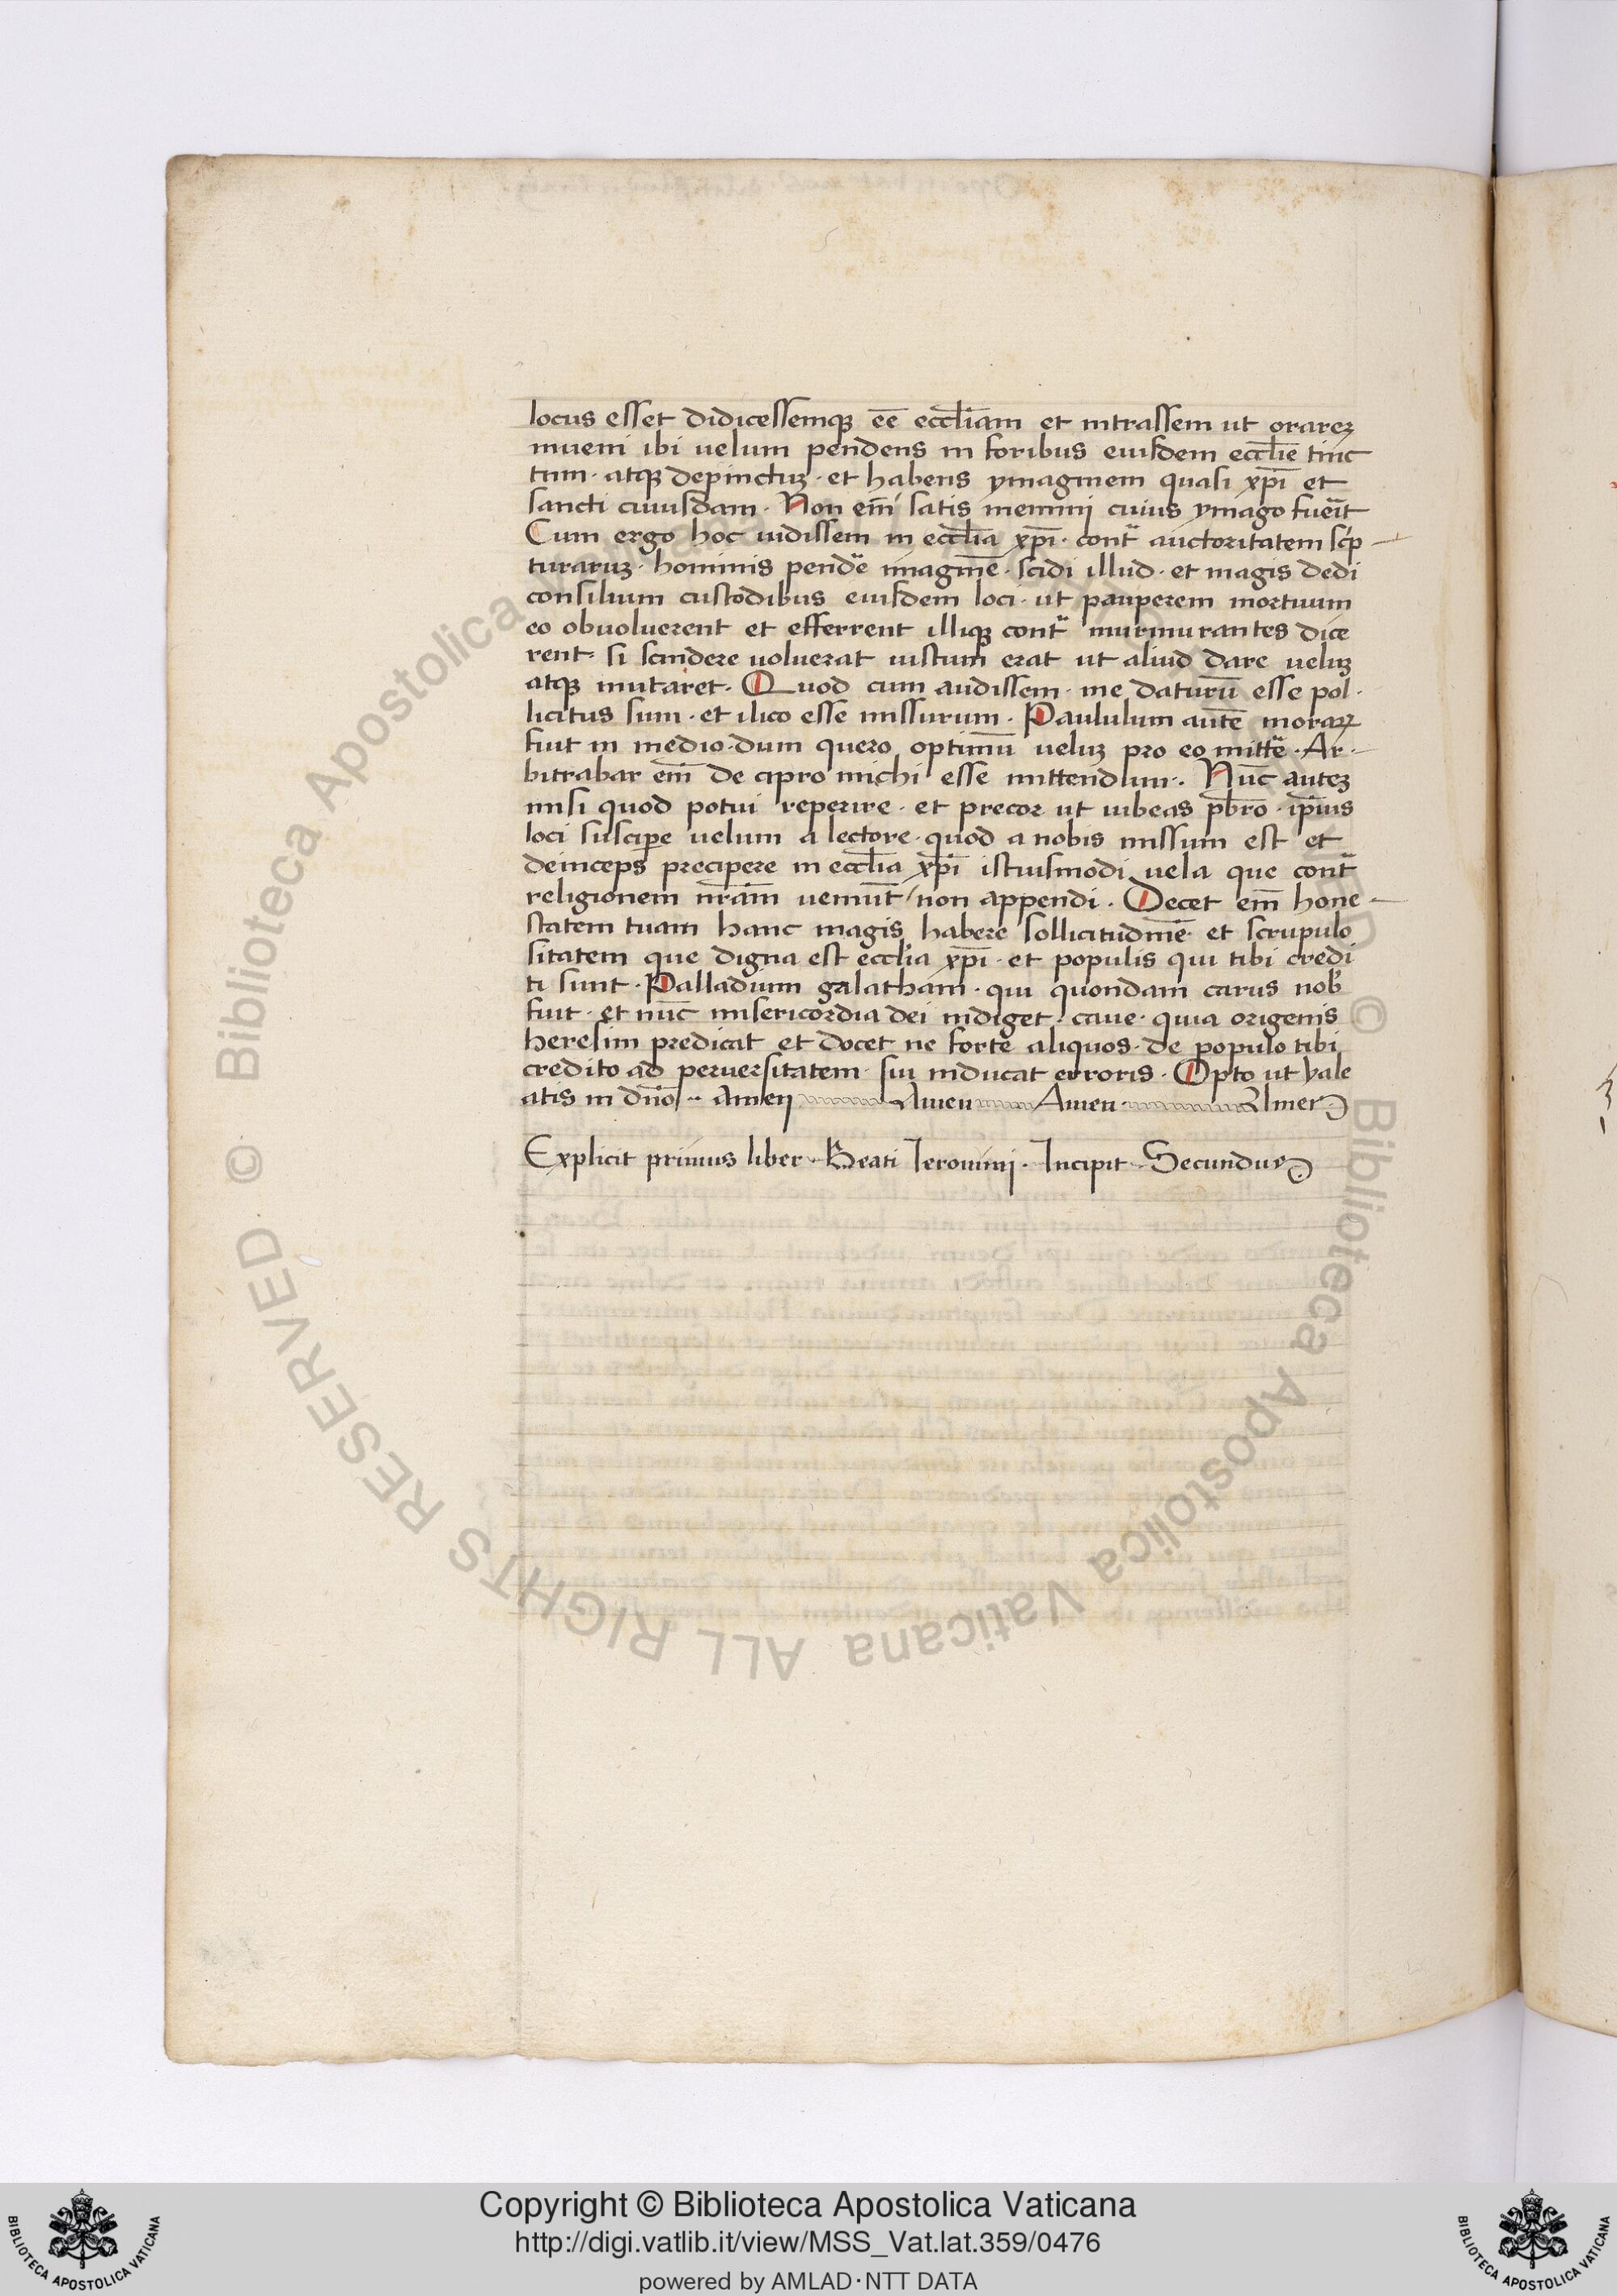 locus esset didicessemqꝫ eē eccl̄iam et intrassem ut orareꝫ
inueni ibi uelum pendens in foribus eiusdem eccl̄ie tinc
tum · atqꝫ depinctuꝫ · et habens ymaginem quasi xp̄i et
sancti cuiusdam · Non eī satis memini cuius ymago fueīt
Cum ergo hoc uidissem in eccl̄ia xp̄i · cont̄ auctoritatem sc̄p
turaruꝫ · hominis pendē imaginē · scidi illud · et magis dedi
consilium custodibus eiusdem loci · ut pauperem mortuum
eo obuoluerent et efferrent illiqꝫ cont̄ murmurantes dice
rent · si scindere uoluerat iustum erat ut aliud dare ueluꝫ
atqꝫ mutaret · Quod cum audissem · me daturū esse pol ·
licitus sum · et ilico esse missurum · Paululum autē moraꝝ
fuit in medio · dum quero optimū ueluꝫ pro eo mittē · Ar ·
bitrabar em̄ de cipro michi esse mittendum · Nūc auteꝫ
misi quod potui reperire · et precor ut iubeas pb̄ro · ip̄ius
loci suscipe uelum a lectore · quod a nobis missum est et
deinceps precipere in eccl̄ia xp̄i istiusmodi uela que cont̄
religionem nr̄am ueniūt / non appendi · Decet em̄ hone ·
statem tuam hanc magis habere sollicitudinē et scrupulo
sitatem que digna est eccl̄ia xp̄i · et populis qui tibi credi
ti sunt · Palladium galatham · qui quondam carus nob̄
fuit · et nūc misericordia dei indiget · caue · quia origenis
heresim predicat et docet ne forte aliquos · de populo tibi
credito ad peruersitatem · sui inducat erroris · Opto ut vale
atis in dn̄o · Amen Amen Amen · Amen
Explicit primus liber · Beati Ieronimi · Incipit · Secundus
© Biblioteca Apostolica Vaticana ALL RIGHTS RESERVED · © Biblioteca Apostolica Vaticana ALL RIGHTS RESERVED ·
Copyright © Biblioteca Apostolica Vaticana
http://digi.vatlib.it/view/MSS_Vat.lat.359/0476
powered by AMLAD·NTT DATA
BIBLIOTECA APOSTOLICA VATICANA
BIBLIOTECA APOSTOLICA VATICANA